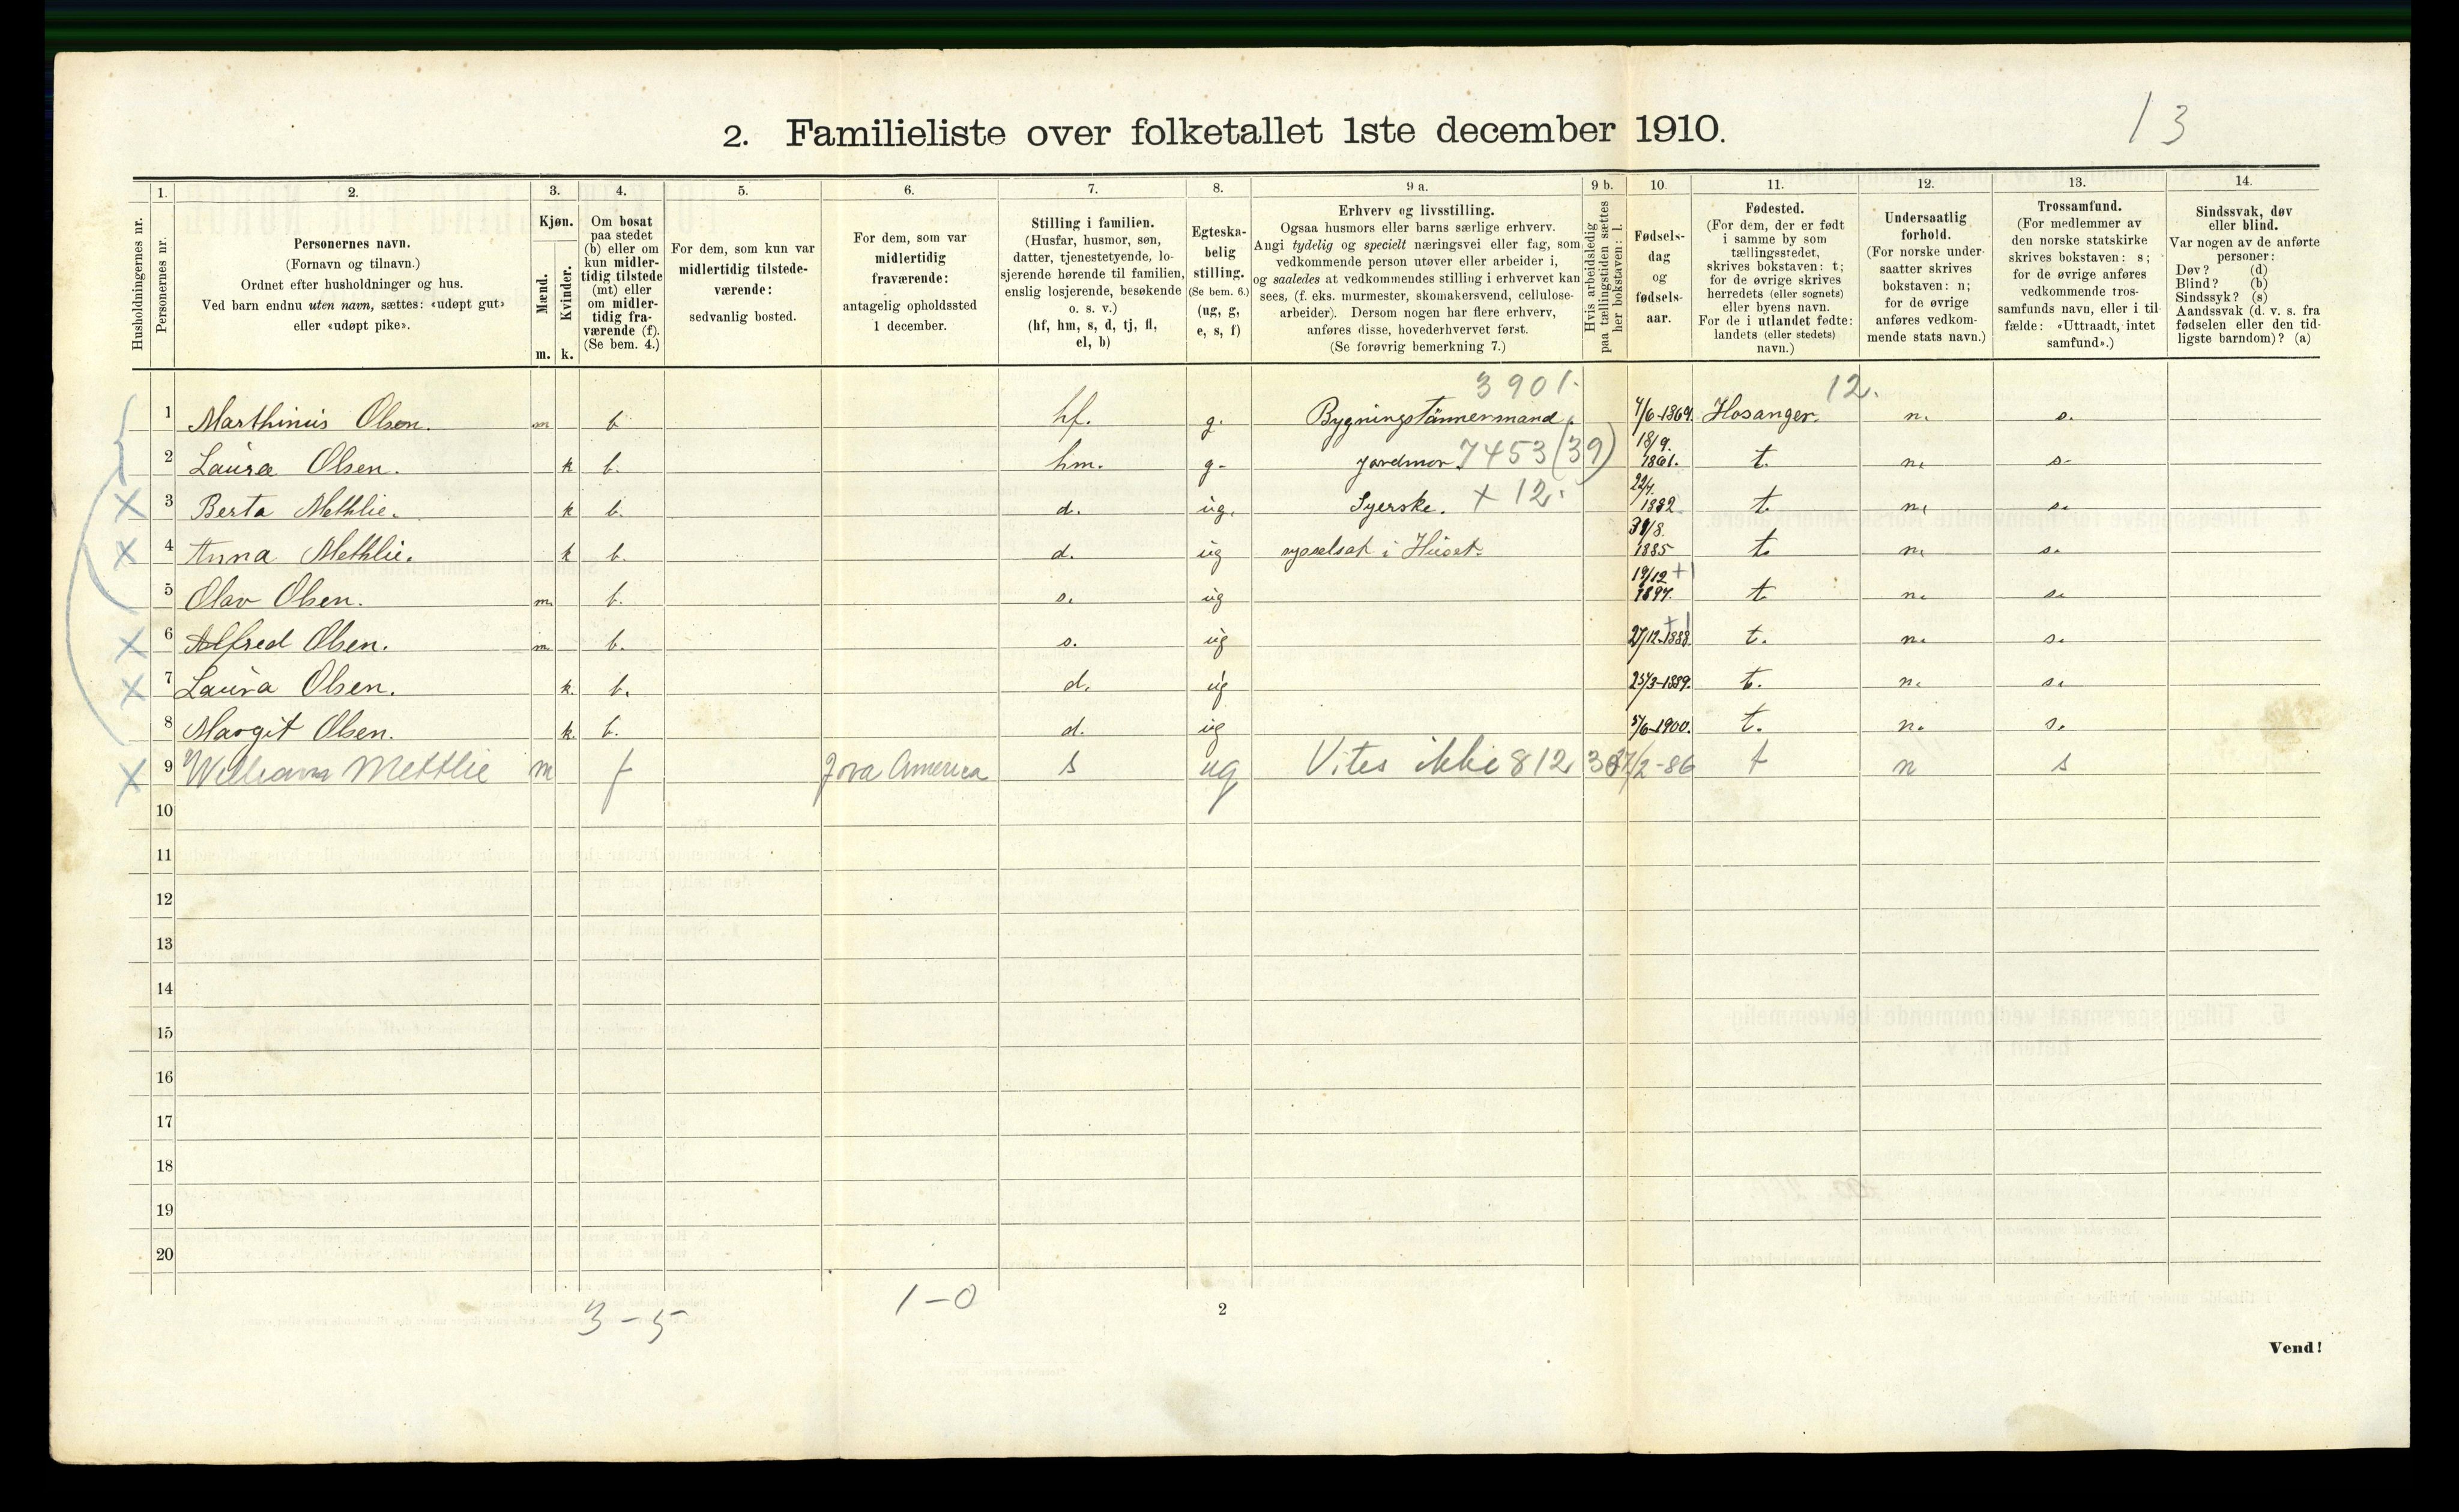 13
2. Familieliste over folketallet 1ste december 1910.
Husholdningernes nr.
1.
Personernes nr.
2.
Personernes navn.
(Fornavn og tilnavn.)
Ordnet efter husholdninger og hus.
Ved barn endnu uten navn, sættes: «udøpt gut»
eller «udøpt pike».
3.
Kjøn.
Mænd.
Kvinder.
m. k.
4.
Om bosat
paa stedet
(b) eller om
kun midler-
tidig tilstede
(mt) eller
om midler-
tidig fra-
værende (f).
(Se bem. 4.)
5.
For dem, som kun var
midlertidig tilstede-
værende:
sedvanlig bosted.
6.
For dem, som var
midlertidig
fraværende:
antagelig opholdssted
1 december.
7.
Stilling i familien.
(Husfar, husmor, søn,
datter, tjenestetyende, lo-
sjerende hørende til familien,
enslig losjerende, besøkende
o. s. v.)
(hf, hm, s, d, tj, fl,
el, b)
8.
Egteska-
belig
stilling.
(Se bem. 6.)
(ug, g,
e, s, f)
9 a.
Erhverv og livsstilling.
Ogsaa husmors eller barns særlige erhverv.
Angi tydelig og specielt næringsvei eller fag, som
vedkommende person utøver eller arbeider i,
og saaledes at vedkommendes stilling i erhvervet kan
sees, (f. eks. murmester, skomakersvend, cellulose-
arbeider). Dersom nogen har flere erhverv,
anføres disse, hovederhvervet først.
(Se forøvrig bemerkning 7.)
9 b.
Hvis arbeidsledig
paa tællingstiden sættes
her bokstaven: l.
10.
Fødsels-
dag
og
fødsels-
aar.
11.
Fødested.
(For dem, der er født
i samme by som
tællingsstedet,
skrives bokstaven: t;
for de øvrige skrives
herredets (eller sognets)
eller byens navn.
For de i utlandet fødte:
landets (eller stedets)
navn.)
12.
Undersaatlig
forhold.
(For norske under-
saatter skrives
bokstaven: n;
for de øvrige
anføres vedkom-
mende stats navn.)
13.
Trossamfund.
(For medlemmer av
den norske statskirke
skrives bokstaven: s;
for de øvrige anføres
vedkommende tros-
samfunds navn, eller i til-
fælde: «Uttraadt, intet
samfund».)
14.
Sindssvak, døv
eller blind.
Var nogen av de anførte
personer:
Døv? (d)
Blind? (b)
Sindssyk? (s)
Aandssvak (d. v. s. fra
fødselen eller den tid-
ligste barndom)? (a)
3901. 12.
1 Marthinius Olsen. m b hf. g. Bygningstømmermand. Hosanger. n. s.
2 Laura Olsen. k b. hm. g. jordmor. 7453 (39) 18/9. 1861. t. n. s.
3 Berta Methlie. k b. d. ug. Syerske. + 12. 1882 t. n. s.
4 Anna Methlie. k b. d. ug sysselsat i Huset. 1885 t. n. s.
5 Olav Olsen. m. b. s. ug 19/12 1897. t n. s.
6 Alfred Olsen. m b. s. ug 27/12-1888. t. n. s.
7 Laura Olsen. k. b. d. ug 25/3-1889. t. n. s.
8 Margit Olsen. k. b. d. ug 5/6-1900. t. n. s.
9 William Methlie m f America s ug Vites ikke 812 /2-86 t n s
10
11
12
13
14
15
16
17
18
19
20
3-5 1-0
2
Vend!